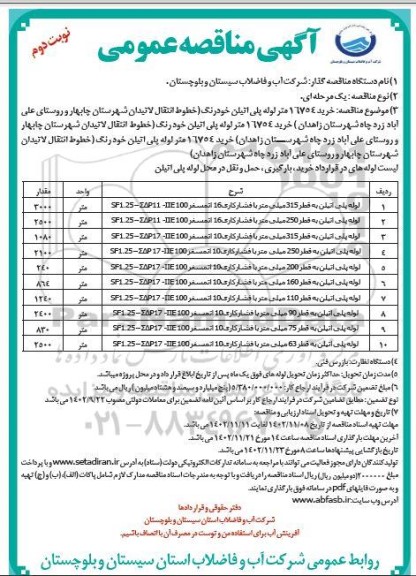 آگهی مناقصه عمومی
نوبت دوم
۱) نام دستگاه مناقصه گذار: شرکت آب و فاضلاب سیستان و بلوچستان.
۲) نوع مناقصه: یک مرحله ای.
۳) موضوع مناقصه: خرید ۱۶۷۵۴ متر لوله پلی اتیلن خودرنگ (خطوط انتقال لاتیدان شهرستان چابهار و روستای علی
آباد زرد چاه شهرستان زاهدان) خرید ۱۶۷۵۴ متر لوله پلی اتیلن خودرنگ (خطوط انتقال لاتیدان شهرستان چابهار
و روستای علی آباد زرد چاه شهرستان زاهدان) خرید ۱۶۷۵۴ متر لوله پلی اتیلن خودرنگ (خطوط انتقال لاتیدان
شهرستان چابهار و روستای علی آباد زرد چاه شهرستان زاهدان)
لیست لوله های در قرارداد خرید، بارگیری، حمل و نقل در محل لوله پلی اتیلن
ردیف شرح واحد مقدار
۱ لوله پلی اتیلن به قطر 315 میلی متر با فشار کاری 16 اتمسفر SF1.25 متر ۳۰۰۰
۲ لوله پلی اتیلن به قطر 250 میلی متر با فشار کاری 16 اتمسفر SF1.25 متر ۲۵۰۰
۳ لوله پلی اتیلن به قطر 315 میلی متر با فشار کاری 10 اتمسفر SF1.25 متر ۱۰۸۰
۴ لوله پلی اتیلن به قطر 250 میلی متر با فشار کاری 10 اتمسفر SF1.25 متر ۲۱۰۰
۵ لوله پلی اتیلن به قطر 200 میلی متر با فشار کاری 10 اتمسفر SF1.25 متر ۲۴۰
۶ لوله پلی اتیلن به قطر 160 میلی متر با فشار کاری 10 اتمسفر SF1.25 متر ۸۶۴
۷ لوله پلی اتیلن به قطر 110 میلی متر با فشار کاری 10 اتمسفر SF1.25 متر ۱۲۴۰
۸ لوله پلی اتیلن به قطر 90 میلی متر با فشار کاری 10 اتمسفر SF1.25 متر ۲۴۰۰
۹ لوله پلی اتیلن به قطر 75 میلی متر با فشار کاری 10 اتمسفر SF1.25 متر ۸۳۰
۱۰ لوله پلی اتیلن به قطر 63 میلی متر با فشار کاری 10 اتمسفر SF1.25 متر ۲۵۰۰
۴) دستگاه نظارت: بازرس فنی.
۵) مدت زمان تحویل: حداکثر زمان تحویل لوله های فوق یک ماه پس از تاریخ ابلاغ قرارداد و در محل پروژه میباشد.
۶) مبلغ تضمین شرکت در فرآیند ارجاع کار: ۵/۳۸۰/۰۰۰/۰۰۰ (پنج میلیارد و سیصد و هشتاد میلیون) ریال می باشد.
نوع تضمین: مطابق تضامین شرکت در فرآیند ارجاع کار بر اساس آئین نامه تضمین برای معاملات دولتی مصوب ۱۴۰۲/۹/۲۲ می باشد.
۷) تاریخ و مهلت تهیه و تحویل اسناد ارزیابی و مناقصه:
مهلت تهیه اسناد مناقصه از تاریخ ۱۴۰۲/۱۱/۰۸ لغایت ۱۴۰۲/۱۱/۱۱ می باشد.
آخرین مهلت بارگذاری اسناد مناقصه ساعت ۱۴ مورخ ۱۴۰۲/۱۱/۲۱ می باشد.
تاریخ بازگشایی پیشنهادها ساعت ۸ مورخ ۱۴۰۲/۱۱/۲۳ می باشد.
تولید کنندگان دارای مجوز فعالیت می توانند با مراجعه به سامانه تدارکات الکترونیکی دولت (ستاد) به آدرس www.setadiran.ir و با پرداخت
مبلغ ۲۰۰۰۰۰۰ (دو میلیون ریال) ریال اسناد مناقصه را دریافت و با توجه به مندرجات اسناد مناقصه مدارک لازم شامل پاکات (الف)، (ب) و (ج) تهیه
و به صورت فایلهای pdf در سامانه فوق بارگذاری نمایند.
آدرس وب سایت: www.abfasb.ir
دفتر حقوقی و قراردادها
شرکت آب و فاضلاب استان سیستان و بلوچستان
آفرینش آب برای استفاده من و توست در مصرف آن با انصاف باشیم.
روابط عمومی شرکت آب و فاضلاب استان سیستان و بلوچستان
۰۲۱-۸۸۳۴۹۶۷۰